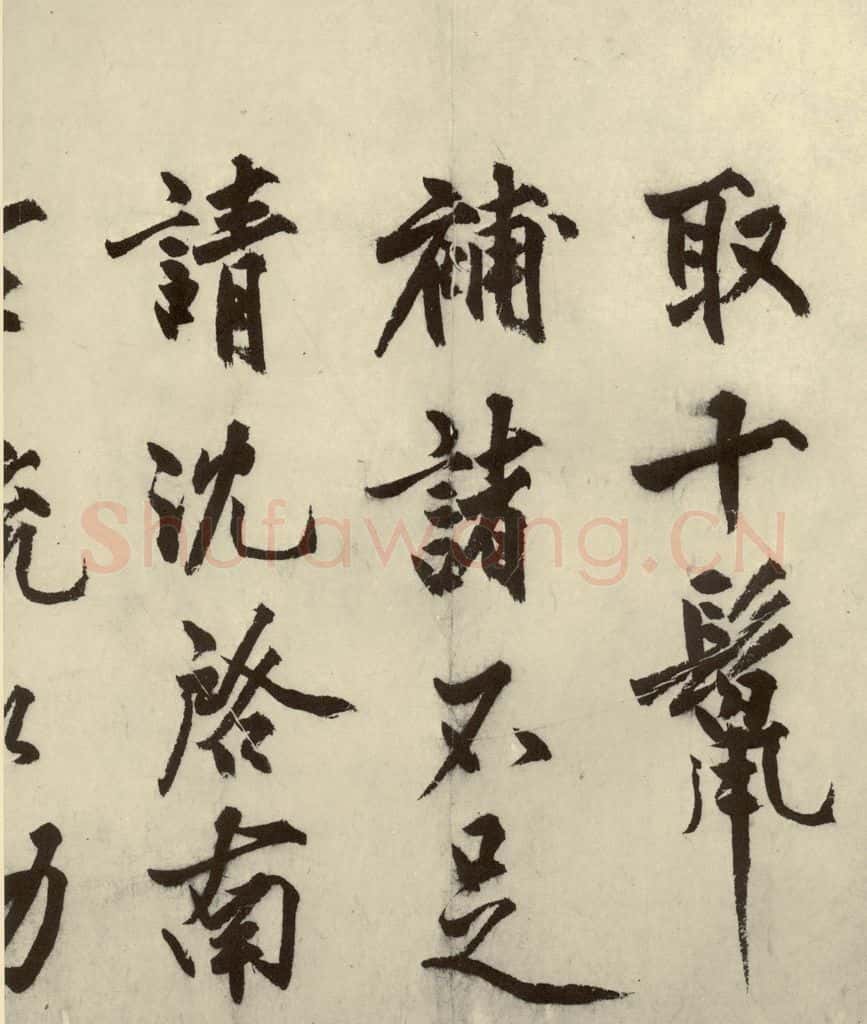 取十鬣
補諸不足
請沈啓南
Shufawang.CN